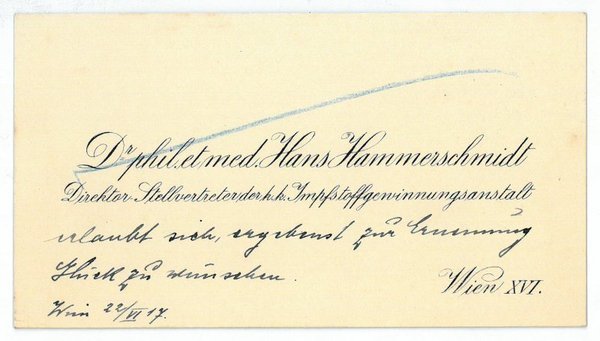 Dr phil. et med. Hans Hammerschmidt
Direktor-Stellvertreter der k.k. Impfstoffgewinnungsanstalt
erlaubt sich, ergebenst zur Ernennung
Glück zu wünschen.
Wien XVI.
Wien 22/VI 17.